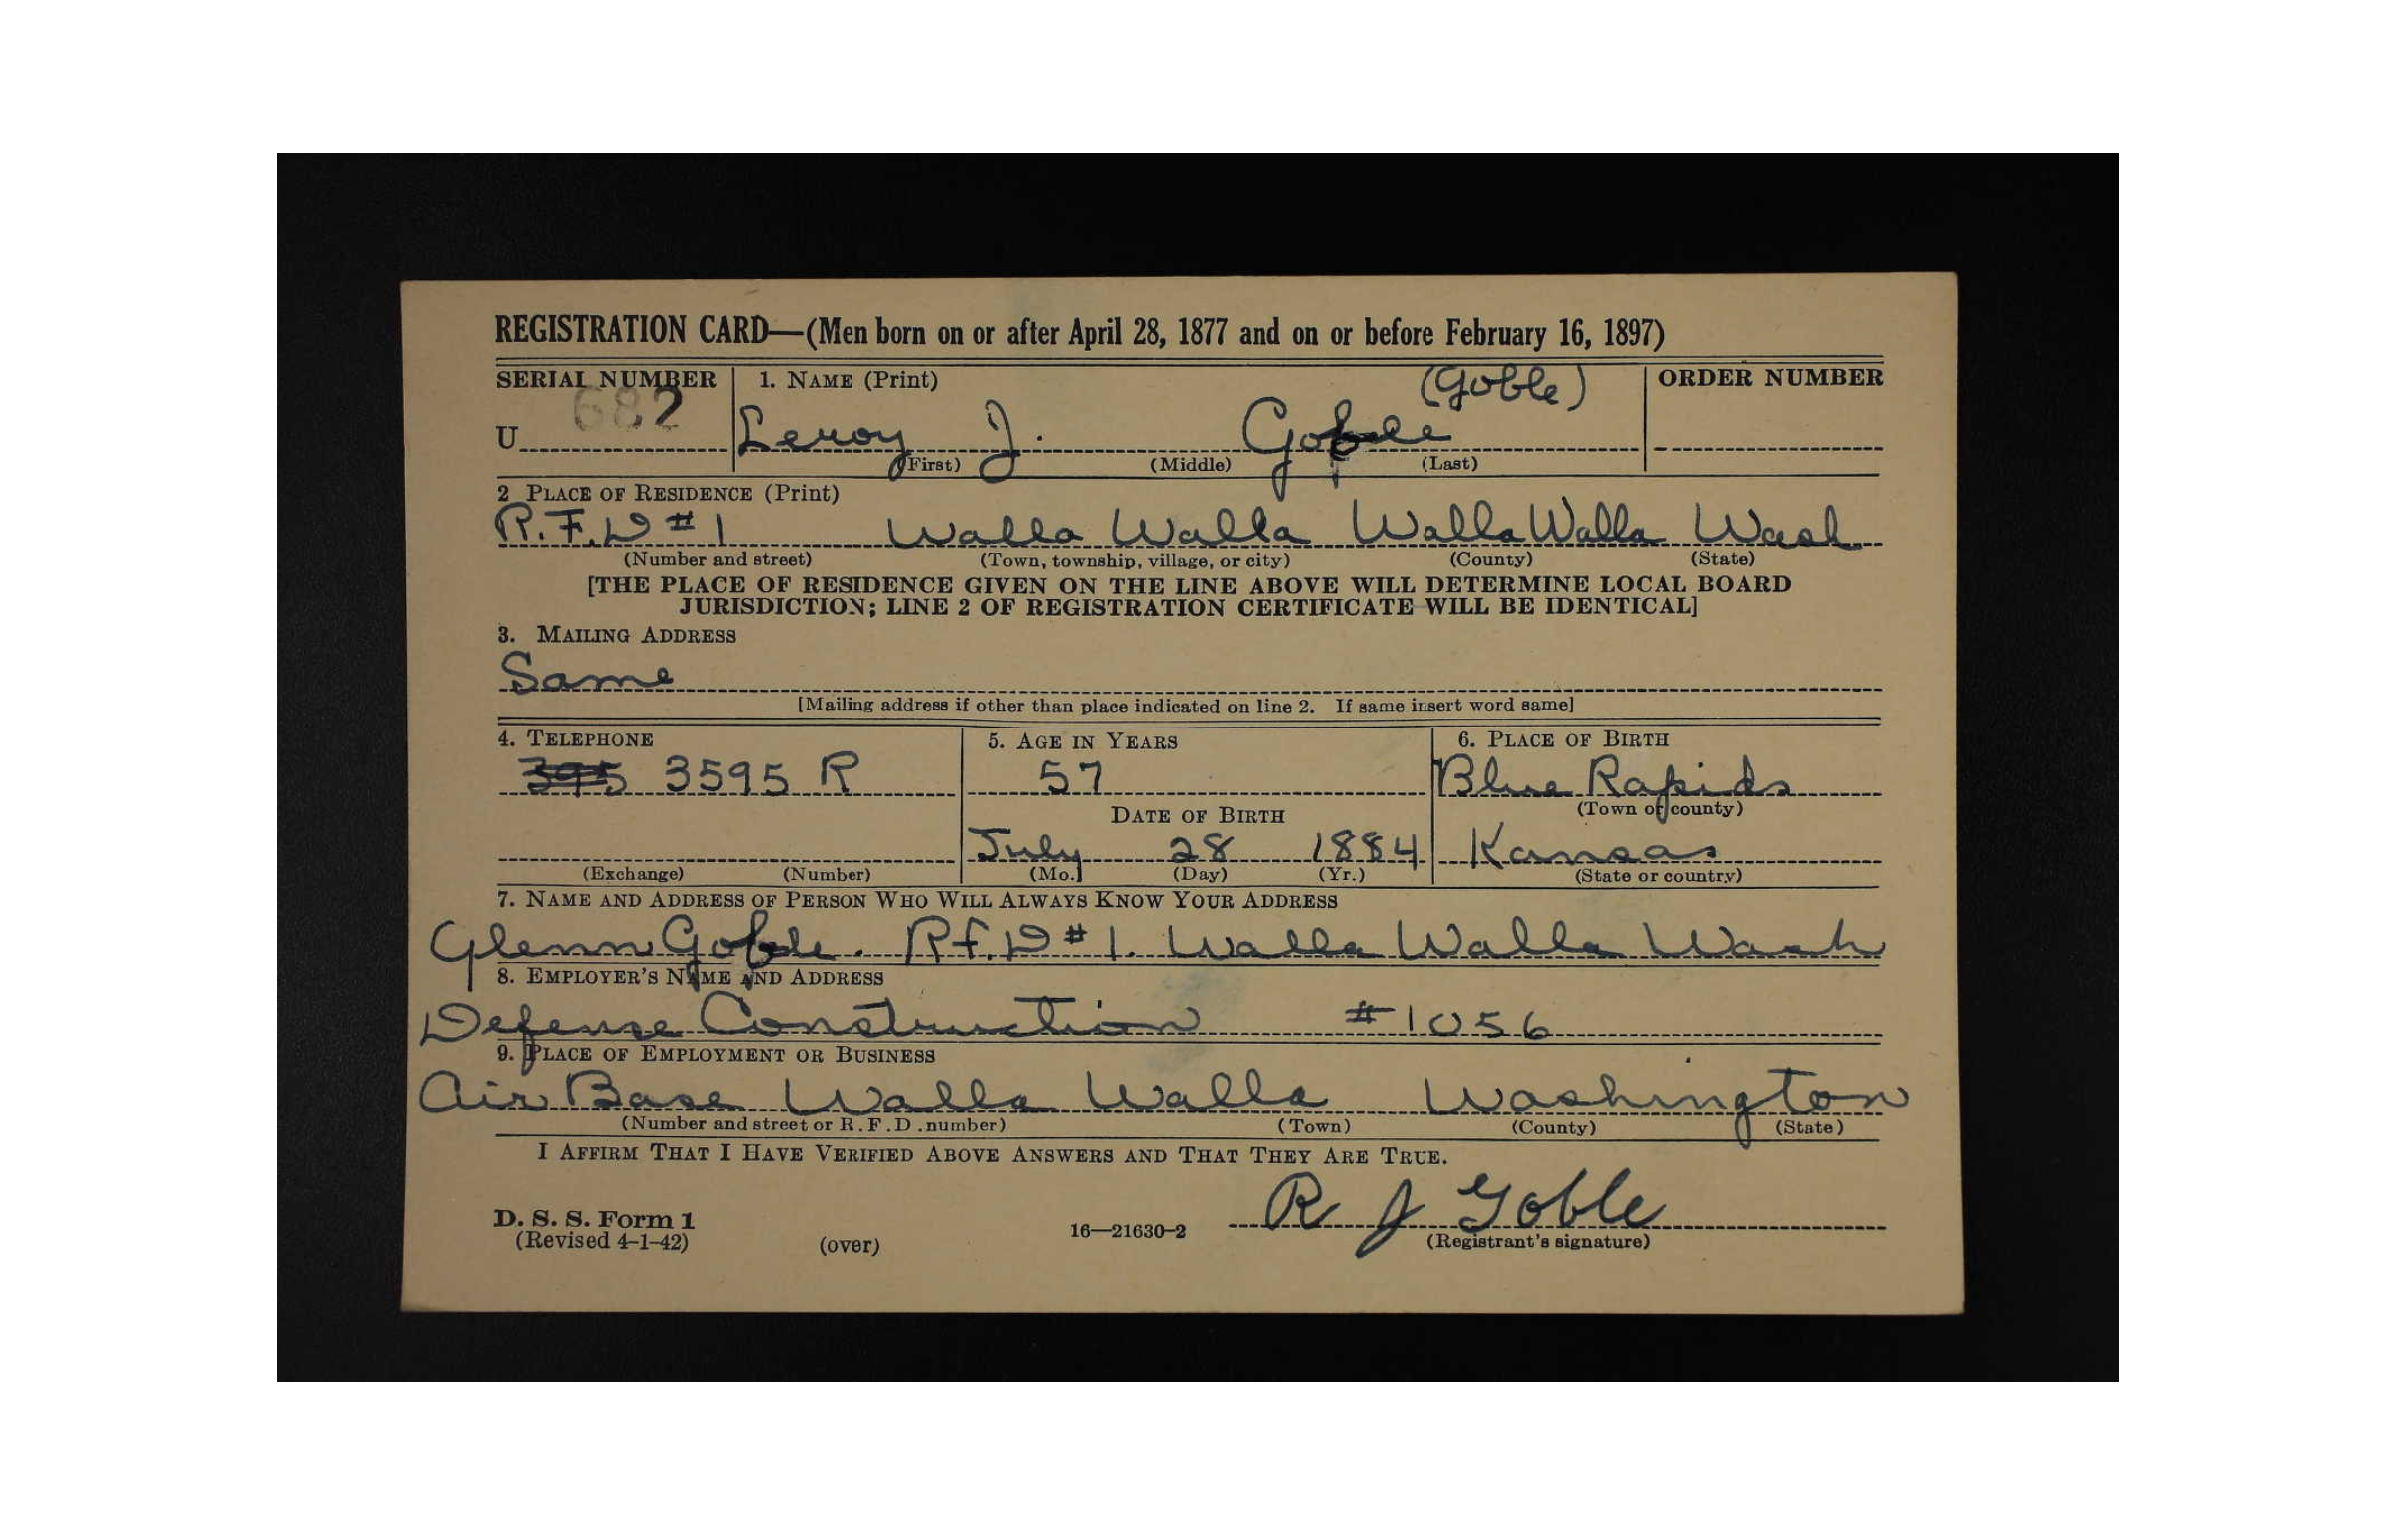 REGISTRATION CARD—(Men born on or after April 28, 1877 and on or before February 16, 1897)
SERIAL NUMBER 1. NAME (Print) (Goble) ORDER NUMBER
U 682 Leroy J. Goble
(First) (Middle) (Last)
2 PLACE OF RESIDENCE (Print)
R.F.D #1 Walla Walla Walla Walla Wash
(Number and street) (Town, township, village, or city) (County) (State)
[THE PLACE OF RESIDENCE GIVEN ON THE LINE ABOVE WILL DETERMINE LOCAL BOARD
JURISDICTION; LINE 2 OF REGISTRATION CERTIFICATE WILL BE IDENTICAL]
3. MAILING ADDRESS
Same
[Mailing address if other than place indicated on line 2. If same insert word same]
4. TELEPHONE 5. AGE IN YEARS 6. PLACE OF BIRTH
395 3595 R 57 Blue Rapids
DATE OF BIRTH (Town or county)
July 28 1884 Kansas
(Exchange) (Number) (Mo.) (Day) (Yr.) (State or country)
7. NAME AND ADDRESS OF PERSON WHO WILL ALWAYS KNOW YOUR ADDRESS
Glenn Goble. R.f.D #1. Walla Walla Wash
8. EMPLOYER'S NAME AND ADDRESS
Defense Construction #1056
9. PLACE OF EMPLOYMENT OR BUSINESS
Air Base Walla Walla Washington
(Number and street or R.F.D. number) (Town) (County) (State)
I AFFIRM THAT I HAVE VERIFIED ABOVE ANSWERS AND THAT THEY ARE TRUE.
R J Goble
D. S. S. Form 1
(Revised 4-1-42) (over) 16—21630-2 (Registrant's signature)